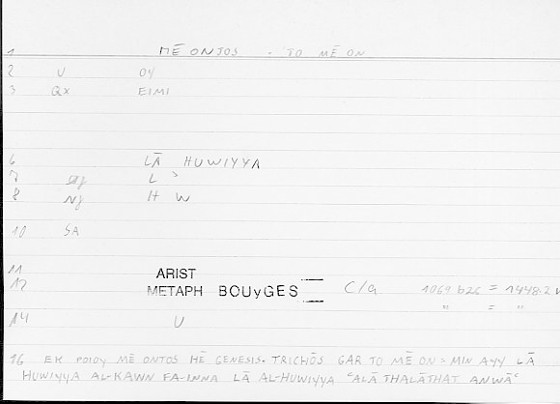 1 MĒ ONTOS - TO MĒ ON
2 V OY
3 QX EIMI
6 LĀ HUWIYYA
7 L >
8 Nf H W
10 SA
11 ARIST
12 METAPH BOUyGES C/a 1069 b26 = 1448.2
" = "
14 V
16 EK POIOY MĒ ONTOS HĒ GENESIS. TRICHŌS GAR TO MĒ ON > MIN AYY LĀ
HUWIYYA AL-KAWN FA-INNA LĀ AL-HUWIYYA ʿALĀ THALĀTHAT ANWĀʿ